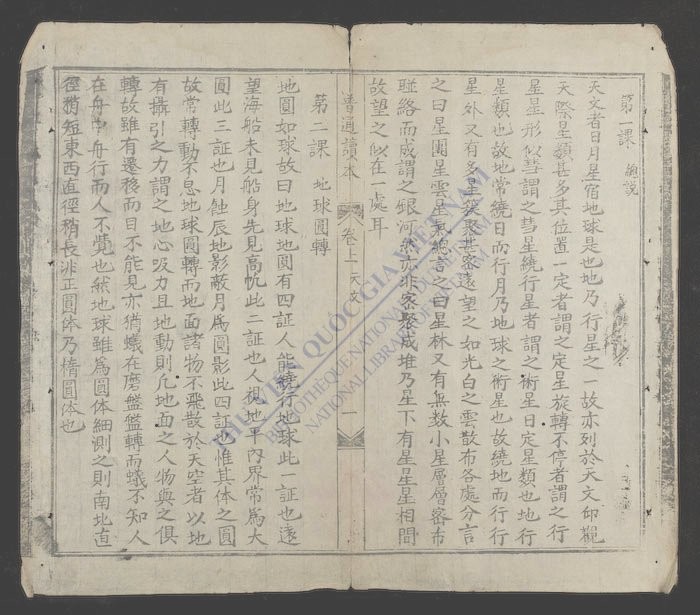 第一課 總說
天文者日月星宿地球是也地乃行星之一故亦列於天文仰觀
天際星類甚多其位置一定者謂之定星旋轉不停者謂之行
星星形似彗謂之彗星繞行星者謂之衛星日定星類也地行
星類也故地常繞日而行月乃地球之衛星也故繞地而行行
星外又有多星簇聚甚密遠望之如光白之雲散布各處分言
之曰星團星雲星氣總言之曰星林又有無數小星層層密布
聯絡而成謂之銀河然亦非密聚成堆乃星下有星星星相間
故望之似在一處耳
普通讀本 卷上 天文 一
第二課 地球圓轉
地圓如球故曰地球地圓有四証人能繞行地球此一証也遠
望海船未見船身先見高帆此二証也人視地平內界常為大
圓此三証也月蝕辰地影蔽月為圓影此四証也惟其体之圓
故常轉動不息地球圓轉而地面諸物不飛散於天空者以地
有攝引之力謂之地心吸力且地動則凡地面之人物與之俱
轉故雖有遷移而目不能見亦猶蟻在磨盤盤轉而蟻不知人
在舟中舟行而人不覺也然地球雖為圓体細測之則南北直
徑稍短東西直徑稍長非正圓体乃橢圓体也
THƯ VIỆN QUỐC GIA VIỆT NAM
BIBLIOTHÈQUE NATIONALE DU VIETNAM
NATIONAL LIBRARY OF VIETNAM